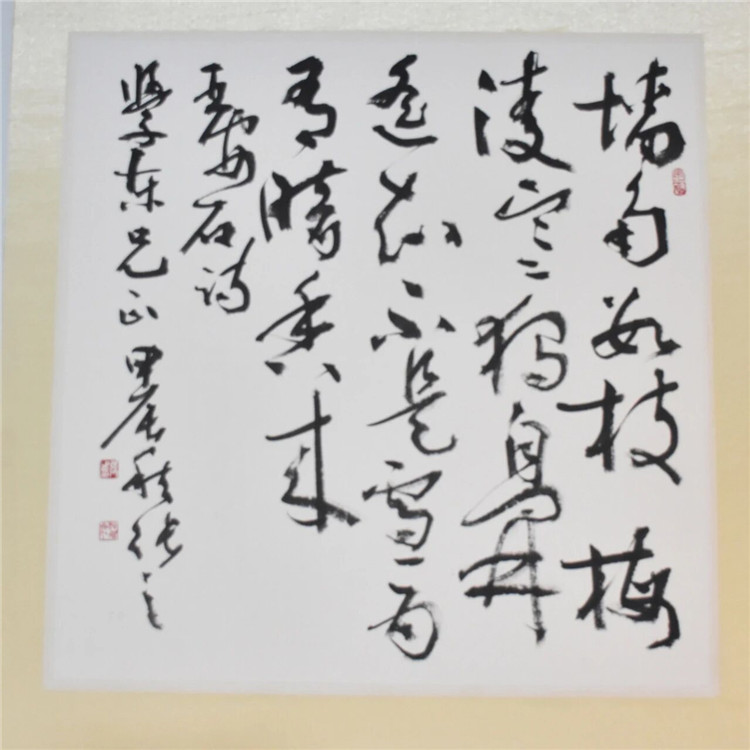 墙角数枝梅
凌寒独自開
遥知不是雪为
有暗香来
王安石诗
学东兄正甲辰秋张